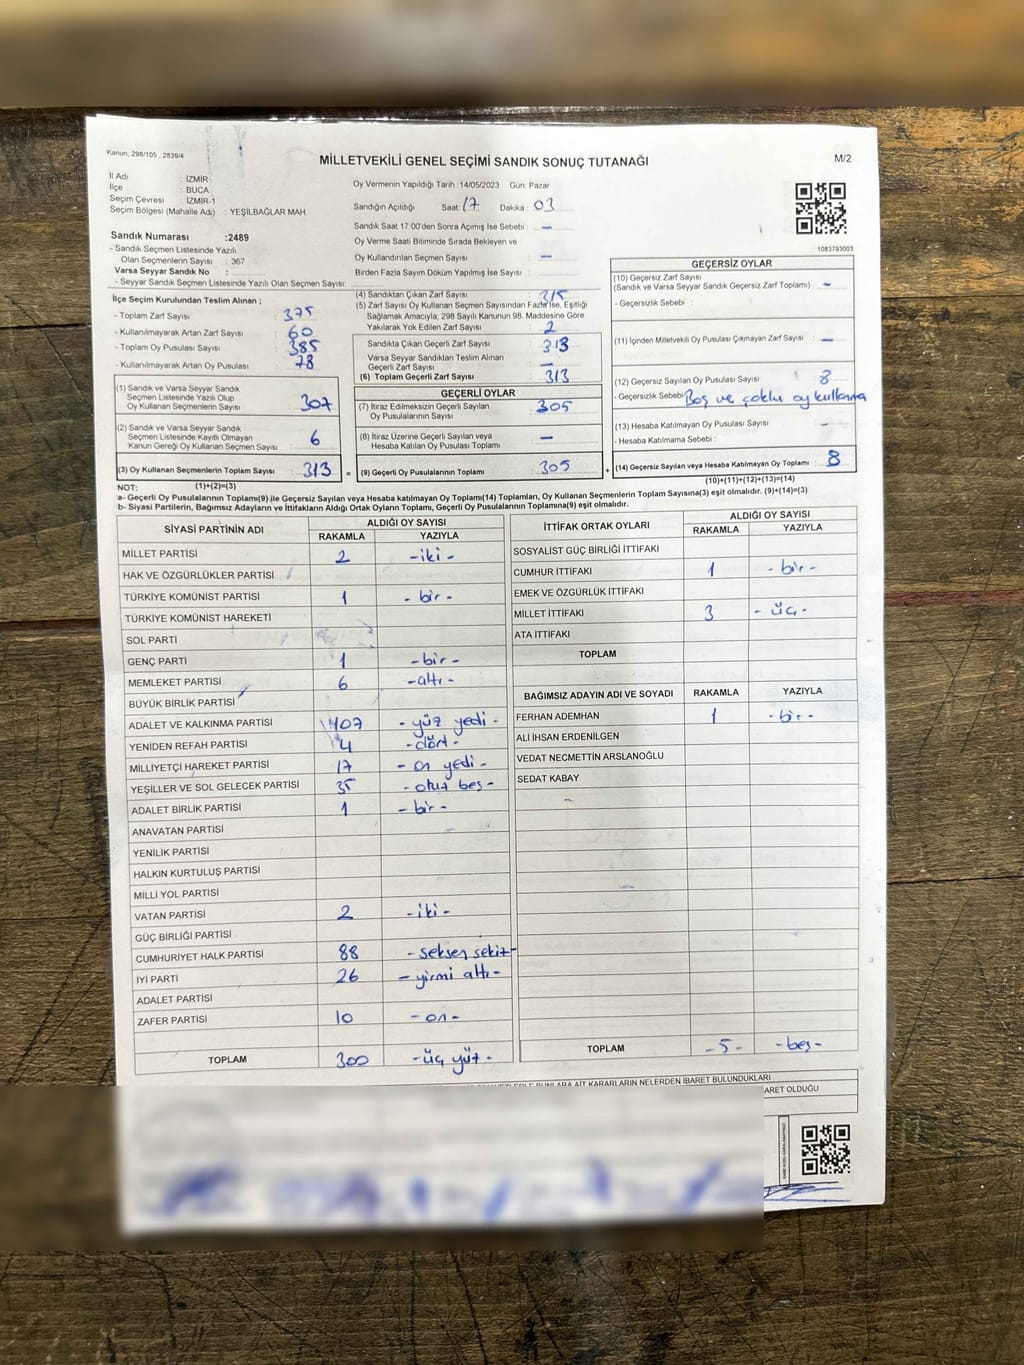 Kanun, 298/105 , 2839/4
MİLLETVEKİLİ GENEL SEÇİMİ SANDIK SONUÇ TUTANAĞI
M/2
İl Adı : İZMİR
İlçe : BUCA
Seçim Çevresi : İZMİR-1
Seçim Bölgesi (Mahalle Adı) : YEŞİLBAĞLAR MAH.
Oy Vermenin Yapıldığı Tarih :14/05/2023 Gün: Pazar
Sandığın Açıldığı Saat :17 Dakika : 03
Sandık Saat 17.00'den Sonra Açılmış İse Sebebi : -
Oy Verme Saati Bitiminde Sırada Bekleyen ve
Oy Kullandırılan Seçmen Sayısı : -
Birden Fazla Sayım Döküm Yapılmış İse Sayısı :
1083793003
Sandık Numarası :2489
- Sandık Seçmen Listesinde Yazılı
Olan Seçmenlerin Sayısı : 367
Varsa Seyyar Sandık No :
- Seyyar Sandık Seçmen Listesinde Yazılı Olan Seçmen Sayısı:
İlçe Seçim Kurulundan Teslim Alınan ;
- Toplam Zarf Sayısı : 375
- Kullanılmayarak Artan Zarf Sayısı : 60
- Toplam Oy Pusulası Sayısı : 385
- Kullanılmayarak Artan Oy Pusulası : 78
(1) Sandık ve Varsa Seyyar Sandık
Seçmen Listesinde Yazılı Olup
Oy Kullanan Seçmenlerin Sayısı : 307
(2) Sandık ve Varsa Seyyar Sandık
Seçmen Listesinde Kayıtlı Olmayan
Kanun Gereği Oy Kullanan Seçmen Sayısı : 6
(3) Oy Kullanan Seçmenlerin Toplam Sayısı : 313
(1)+(2)=(3)
(4) Sandıktan Çıkan Zarf Sayısı : 315
(5) Zarf Sayısı Oy Kullanan Seçmen Sayısından Fazla İse, Eşitliği
Sağlamak Amacıyla; 298 Sayılı Kanunun 98. Maddesine Göre
Yakılarak Yok Edilen Zarf Sayısı : 2
Sandıkta Çıkan Geçerli Zarf Sayısı : 313
Varsa Seyyar Sandıktan Teslim Alınan
Geçerli Zarf Sayısı : -
(6) Toplam Geçerli Zarf Sayısı : 313
GEÇERLİ OYLAR
(7) İtiraz Edilmeksizin Geçerli Sayılan
Oy Pusulalarının Sayısı : 305
(8) İtiraz Üzerine Geçerli Sayılan veya
Hesaba Katılan Oy Pusulası Toplamı : -
= (9) Geçerli Oy Pusulalarının Toplamı : 305
GEÇERSİZ OYLAR
(10) Geçersiz Zarf Sayısı
(Sandık ve Varsa Seyyar Sandık Geçersiz Zarf Toplamı) : -
- Geçersizlik Sebebi :
(11) İçinden Milletvekili Oy Pusulası Çıkmayan Zarf Sayısı : -
(12) Geçersiz Sayılan Oy Pusulası Sayısı : 8
- Geçersizlik Sebebi : Boş ve çoklu oy kullanma
(13) Hesaba Katılmayan Oy Pusulası Sayısı : -
- Hesaba Katılmama Sebebi :
+ (14) Geçersiz Sayılan veya Hesaba Katılmayan Oy Toplamı : 8
(10)+(11)+(12)+(13)=(14)
NOT:
a- Geçerli Oy Pusulalarının Toplamı(9) ile Geçersiz Sayılan veya Hesaba katılmayan Oy Toplamı(14) Toplamları, Oy Kullanan Seçmenlerin Toplam Sayısına(3) eşit olmalıdır. (9)+(14)=(3)
b- Siyasi Partilerin, Bağımsız Adayların ve İttifakların Aldığı Ortak Oyların Toplamı, Geçerli Oy Pusulalarının Toplamına(9) eşit olmalıdır.
SİYASİ PARTİNİN ADI ALDIĞI OY SAYISI
RAKAMLA YAZIYLA
MİLLET PARTİSİ 2 -iki-
HAK VE ÖZGÜRLÜKLER PARTİSİ
TÜRKİYE KOMÜNİST PARTİSİ 1 -bir-
TÜRKİYE KOMÜNİST HAREKETİ
SOL PARTİ
GENÇ PARTİ 1 -bir-
MEMLEKET PARTİSİ 6 -altı-
BÜYÜK BİRLİK PARTİSİ
ADALET VE KALKINMA PARTİSİ 107 -yüz yedi-
YENİDEN REFAH PARTİSİ 4 -dört-
MİLLİYETÇİ HAREKET PARTİSİ 17 -on yedi-
YEŞİLLER VE SOL GELECEK PARTİSİ 35 -otuz beş-
ADALET BİRLİK PARTİSİ 1 -bir-
ANAVATAN PARTİSİ
YENİLİK PARTİSİ
HALKIN KURTULUŞ PARTİSİ
MİLLİ YOL PARTİSİ
VATAN PARTİSİ 2 -iki-
GÜÇ BİRLİĞİ PARTİSİ
CUMHURİYET HALK PARTİSİ 88 -seksen sekiz-
İYİ PARTİ 26 -yirmi altı-
ADALET PARTİSİ
ZAFER PARTİSİ 10 -on-
TOPLAM 300 -üç yüz-
İTTİFAK ORTAK OYLARI ALDIĞI OY SAYISI
RAKAMLA YAZIYLA
SOSYALİST GÜÇ BİRLİĞİ İTTİFAKI
CUMHUR İTTİFAKI 1 -bir-
EMEK VE ÖZGÜRLÜK İTTİFAKI
MİLLET İTTİFAKI 3 -üç-
ATA İTTİFAKI
TOPLAM
BAĞIMSIZ ADAYIN ADI VE SOYADI RAKAMLA YAZIYLA
FERHAN ADEMHAN 1 -bir-
ALİ İHSAN ERDENİLGEN
VEDAT NECMETTİN ARSLANOĞLU
SEDAT KABAY
TOPLAM -5- -beş-
BUNLARA AİT KARARLARIN NELERDEN İBARET BULUNDUKLARI
ARET OLDUĞU